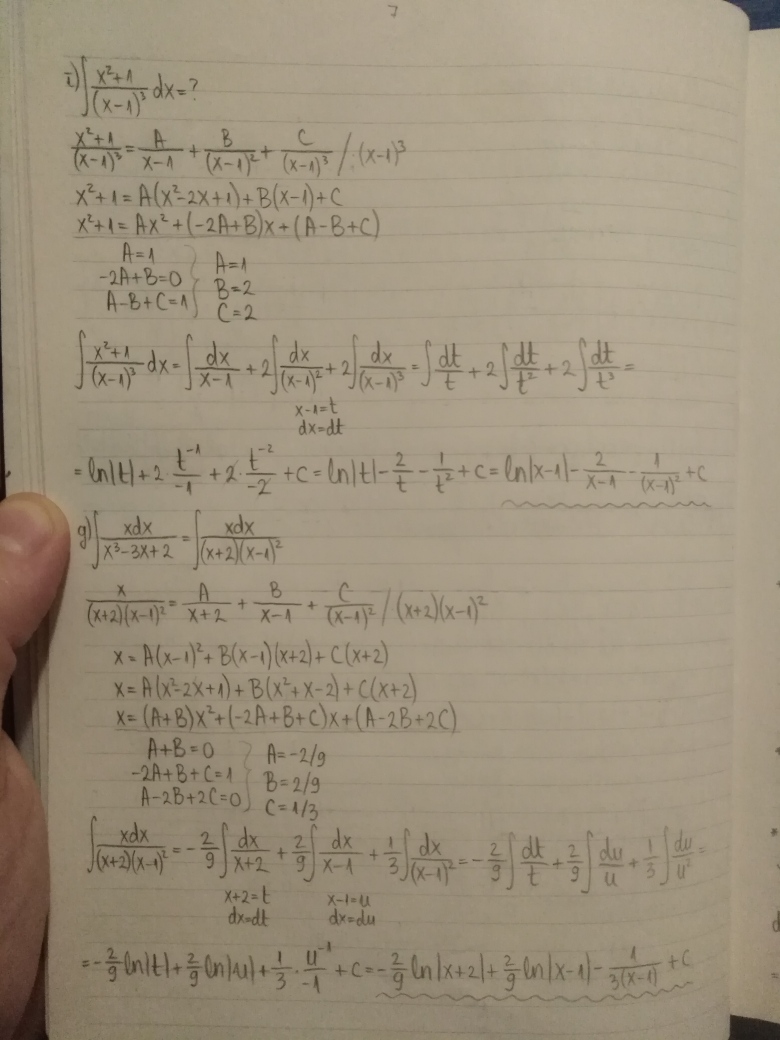 7
i) ∫ (x²+1)/(x-1)³ dx = ?
(x²+1)/(x-1)³ = A/(x-1) + B/(x-1)² + C/(x-1)³ /·(x-1)³
x²+1 = A(x²-2x+1) + B(x-1) + C
x²+1 = Ax² + (-2A+B)x + (A-B+C)
A=1
-2A+B=0
A-B+C=1
A=1
B=2
C=2
∫ (x²+1)/(x-1)³ dx = ∫ dx/(x-1) + 2∫ dx/(x-1)² + 2∫ dx/(x-1)³ = ∫ dt/t + 2∫ dt/t² + 2∫ dt/t³ =
x-1=t
dx=dt
= ln|t| + 2·t⁻¹/-1 + 2·t⁻²/-2 + C = ln|t| - 2/t - 1/t² + C = ln|x-1| - 2/(x-1) - 1/(x-1)² + C
g) ∫ xdx/(x³-3x+2) = ∫ xdx/((x+2)(x-1)²)
x/((x+2)(x-1)²) = A/(x+2) + B/(x-1) + C/(x-1)² / (x+2)(x-1)²
x = A(x-1)² + B(x-1)(x+2) + C(x+2)
x = A(x²-2x+1) + B(x²+x-2) + C(x+2)
x = (A+B)x² + (-2A+B+C)x + (A-2B+2C)
A+B=0
-2A+B+C=1
A-2B+2C=0
A=-2/9
B=2/9
C=1/3
∫ xdx/((x+2)(x-1)²) = -2/9 ∫ dx/(x+2) + 2/9 ∫ dx/(x-1) + 1/3 ∫ dx/(x-1)² = -2/9 ∫ dt/t + 2/9 ∫ du/u + 1/3 ∫ du/u² =
x+2=t x-1=u
dx=dt dx=du
= -2/9 ln|t| + 2/9 ln|u| + 1/3 · u⁻¹/-1 + C = -2/9 ln|x+2| + 2/9 ln|x-1| - 1/(3(x-1)) + C